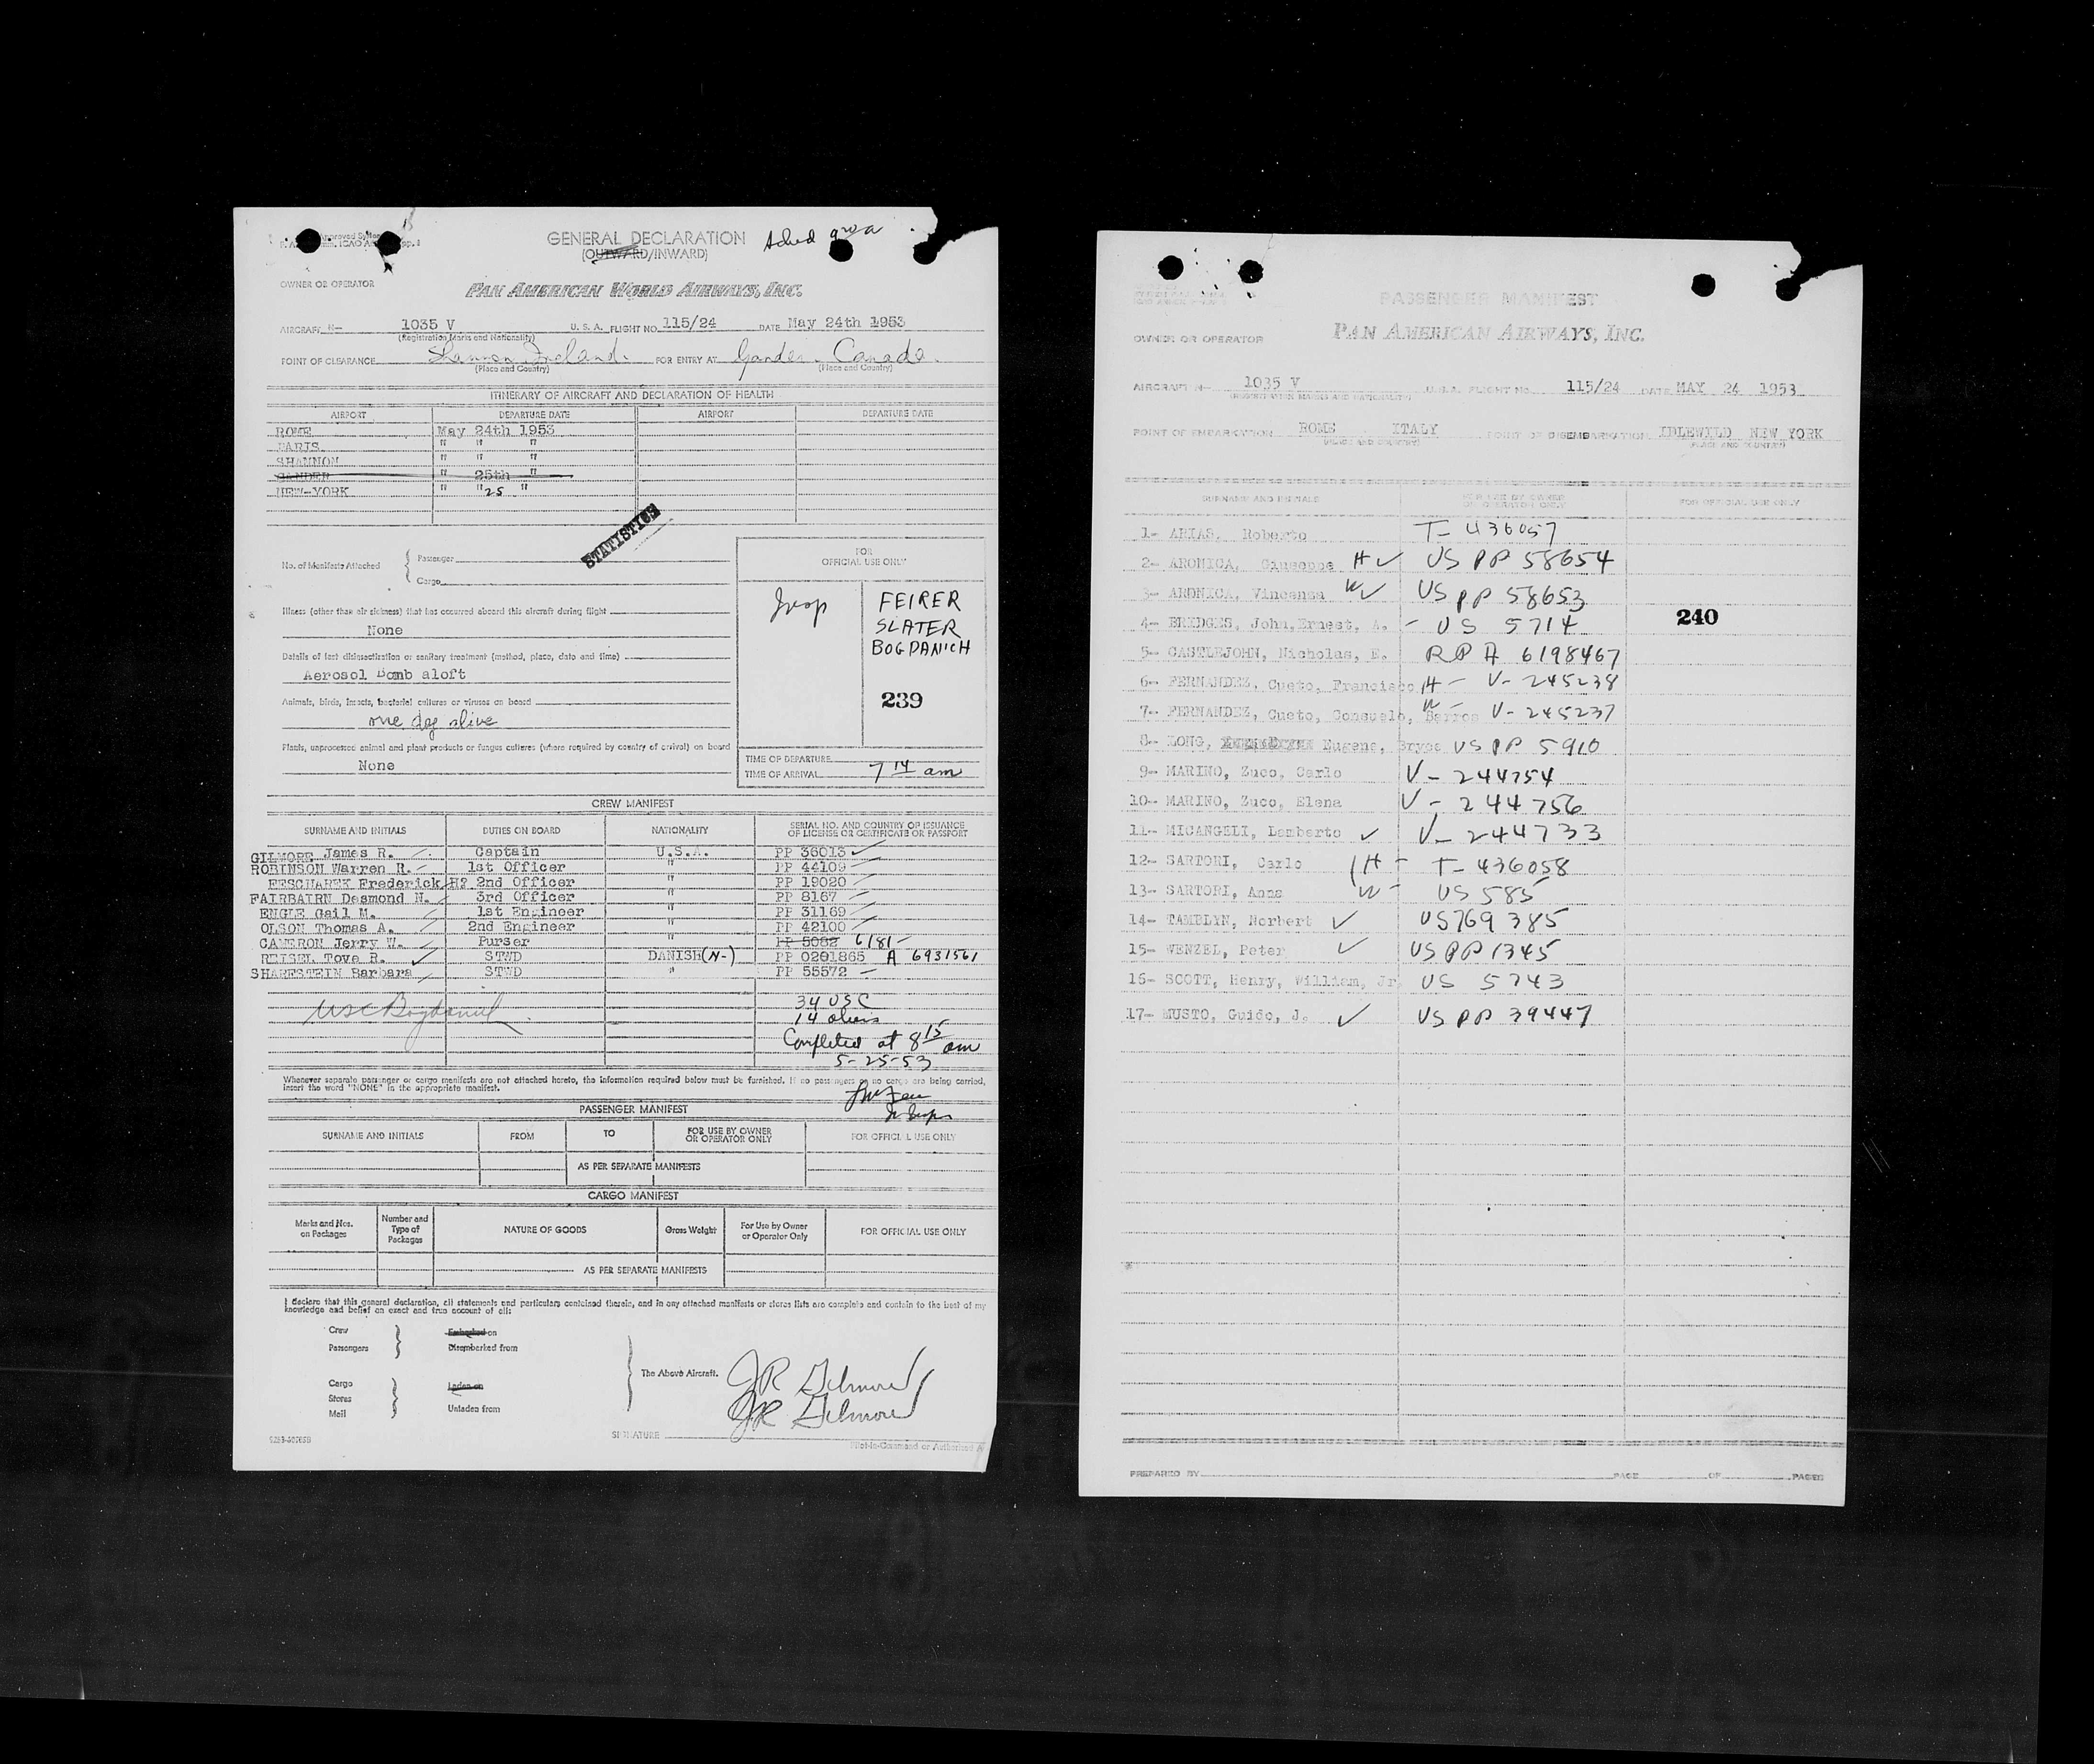 GENERAL DECLARATION
(OUTWARD/INWARD)
OWNER OR OPERATOR
PAN AMERICAN WORLD AIRWAYS, INC.
AIRCRAFT N- 1035 V U. S. A. FLIGHT NO. 115/24 DATE May 24th 1953
(Registration Marks and Nationality)
POINT OF CLEARANCE Shannon Ireland. FOR ENTRY AT Gander. Canada.
(Place and Country) (Place and Country)
ITINERARY OF AIRCRAFT AND DECLARATION OF HEALTH
AIRPORT DEPARTURE DATE AIRPORT DEPARTURE DATE
ROME May 24th 1953
PARIS " " "
SHANNON " " "
GANDER " 25th "
NEW-YORK " "25 "
STATISTICS
No. of Manifests Attached { Passenger
Cargo
FOR
OFFICIAL USE ONLY
Illness (other than air sickness) that has occurred aboard this aircraft during flight
None
Details of last disinsectization or sanitary treatment (method, place, date and time)
Aerosol Bomb aloft
Animals, birds, insects, bacterial cultures or viruses on board
one dog alive
Plants, unprocessed animal and plant products or fungus cultures (where required by country of arrival) on board
None
FEIRER
SLATER
BOGDANICH
239
TIME OF DEPARTURE
TIME OF ARRIVAL 7 14 am
CREW MANIFEST
SURNAME AND INITIALS DUTIES ON BOARD NATIONALITY SERIAL NO. AND COUNTRY OF ISSUANCE
OF LICENSE OR CERTIFICATE OR PASSPORT
GILMORE James R. Captain U.S.A. PP 36013
ROBINSON Warren R. 1st Officer " PP 44109
Frederick H? 2nd Officer " PP 19020
FAIRBAIRN Desmond N. 3rd Officer " PP 8167
ENGLE Gail M. 1st Engineer " PP 31169
OLSON Thomas A. 2nd Engineer " PP 42100
CAMERON Jerry W. Purser " PP 5082 6181
REISEL Tove R. STWD DANISH (N-) PP 0201865 A 6931561
SHARFSTEIN Barbara STWD " PP 55572
34 USC
14 aliens
Completed at 8 15 am
5-25-53
Whenever separate passenger or cargo manifests are not attached hereto, the information required below must be furnished. If no passengers or no cargo are being carried,
insert the word "NONE" in the appropriate manifest.
PASSENGER MANIFEST
SURNAME AND INITIALS FROM TO FOR USE BY OWNER
OR OPERATOR ONLY FOR OFFICIAL USE ONLY
AS PER SEPARATE MANIFESTS
CARGO MANIFEST
Marks and Nos.
on Packages Number and
Type of
Packages NATURE OF GOODS Gross Weight For Use by Owner
or Operator Only FOR OFFICIAL USE ONLY
AS PER SEPARATE MANIFESTS
I declare that this general declaration, all statements and particulars contained therein, and in any attached manifests or stores lists are complete and contain to the best of my
knowledge and belief an exact and true account of all:
Crew
Passengers } Embarked on
Disembarked from
Cargo
Stores
Mail } Laden on
Unladen from
} The Above Aircraft.
JR Gilmore
JR Gilmore
SIGNATURE
Pilot-in-Command or Authorized
PASSENGER MANIFEST
OWNER OR OPERATOR PAN AMERICAN AIRWAYS, INC.
AIRCRAFT N- 1035 V U.S.A. FLIGHT NO. 115/24 DATE MAY 24 1953
(REGISTRATION MARKS AND NATIONALITY)
POINT OF EMBARKATION ROME ITALY POINT OF DISEMBARKATION IDLEWILD NEW YORK
(PLACE AND COUNTRY) (PLACE AND COUNTRY)
SURNAME AND INITIALS FOR USE BY OWNER
OR OPERATOR ONLY FOR OFFICIAL USE ONLY
1- ARIAS, Roberto T- 436057
2- ARONICA, Giuseppe H US PP 58654
3- ARONICA, Vincenza W US PP 58653
240
4- BRIDGES, John,Ernest, A. - US 5714
5- CASTLEJOHN, Nicholas, E. RPA 6198467
6- FERNANDEZ, Cueto, Francisco H - V- 245238
7- FERNANDEZ, Cueto, Consuelo, Barros W - V- 245237
8- LONG, Eugene, Bryes US PP 5910
9- MARINO, Zuco, Carlo V- 244754
10- MARINO, Zuco, Elena V- 244756
11- MICANGELI, Lamberto V- 244733
12- SARTORI, Carlo H - T- 436058
13- SARTORI, Anna W - US 585
14- TAMBLYN, Norbert US769 385
15- WENZEL, Peter US PP 1345
16- SCOTT, Henry, William, Jr. US 5743
17- MUSTO, Guido, J. US PP 39447
PREPARED BY PAGE OF PAGES